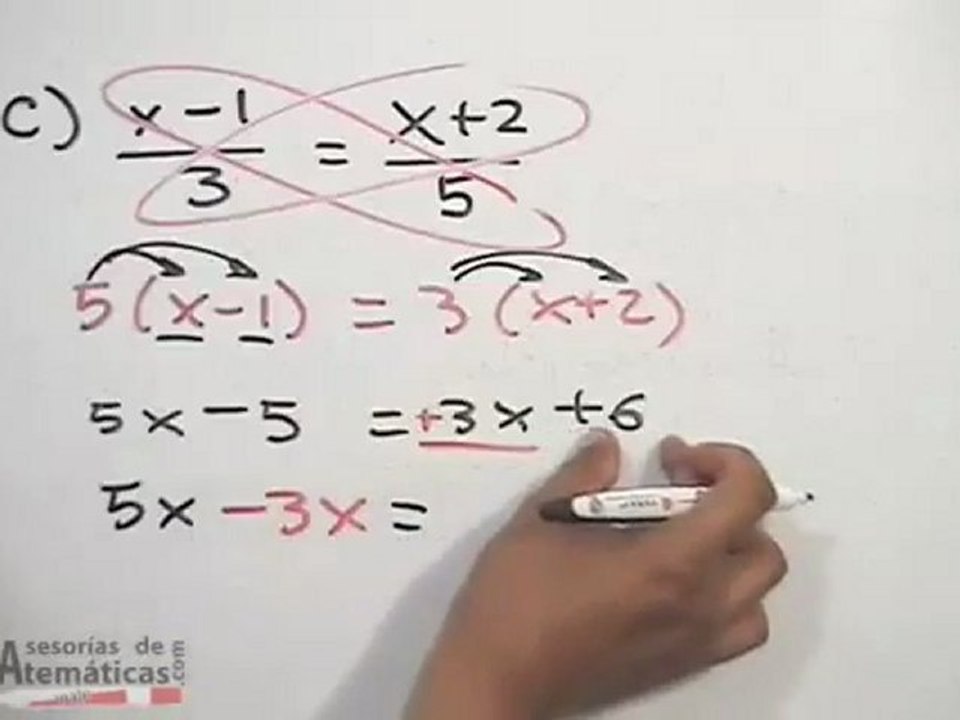 C) x-1/3 = x+2/5
5(x-1) = 3(x+2)
5x-5 = +3x+6
5x-3x=
Asesorías de
Matemáticas.com